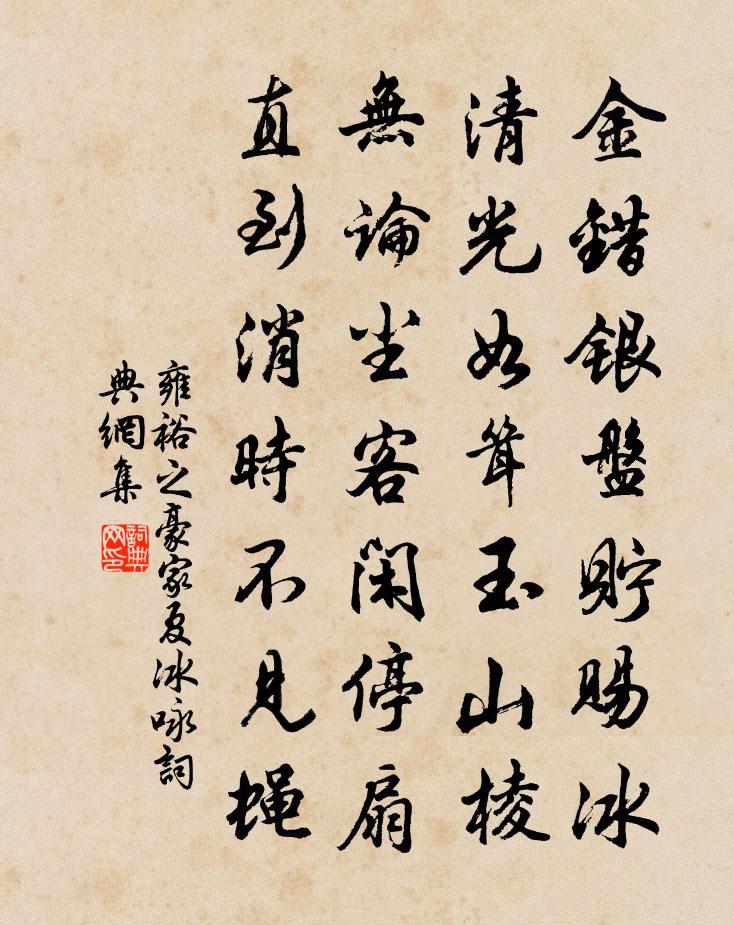 金錯銀盤貯賜冰
清光如聳玉山棱
無論塵客閑停扇
直到消時不見蝇
雍裕之豪家夏冰咏詞
典網集
詞典
网印